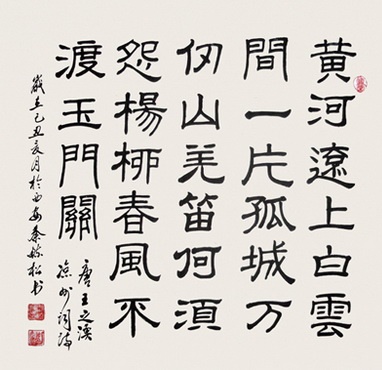 黄河遠上白雲
間一片孤城万
仞山羌笛何須
怨楊柳春風不
渡玉門關
唐王之渙
涼州詞詩
歲在己丑亥月於西安秦毓松书